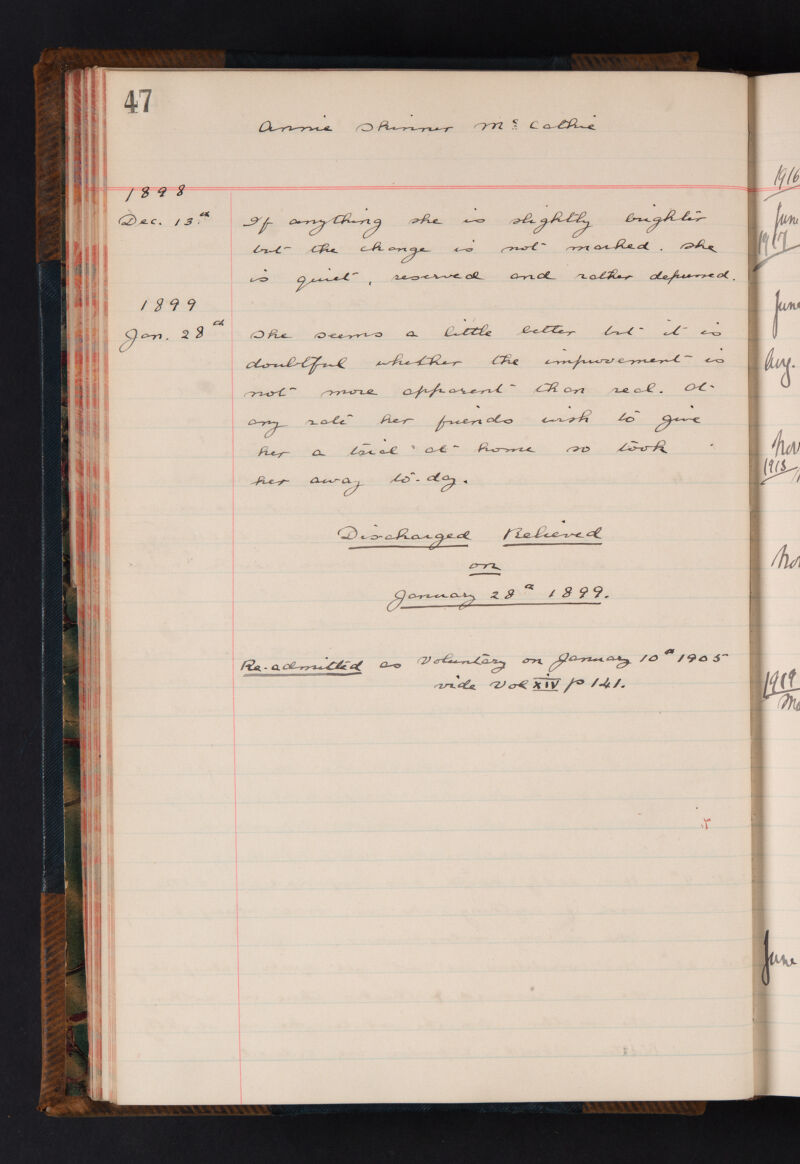 47
Annie Skinner McCathie
1898
Dec. 13th If anything she is slightly brighter
but the change is not marked. She
is quiet, reserved and rather depressed.
1899
Jan. 28th She seems a little better but it is
doubtful whether the improvement is
not more apparent than real. At
any rate her friends wish to give
her a trial at home so took
her away to-day.
Discharged Relieved
on
January 28th 1899.
Re-admitted as Voluntary on January 10th 1905
vide Vol XIV p 141.
1916
June
1917
June
Aug.
Nov
1918
1919
June